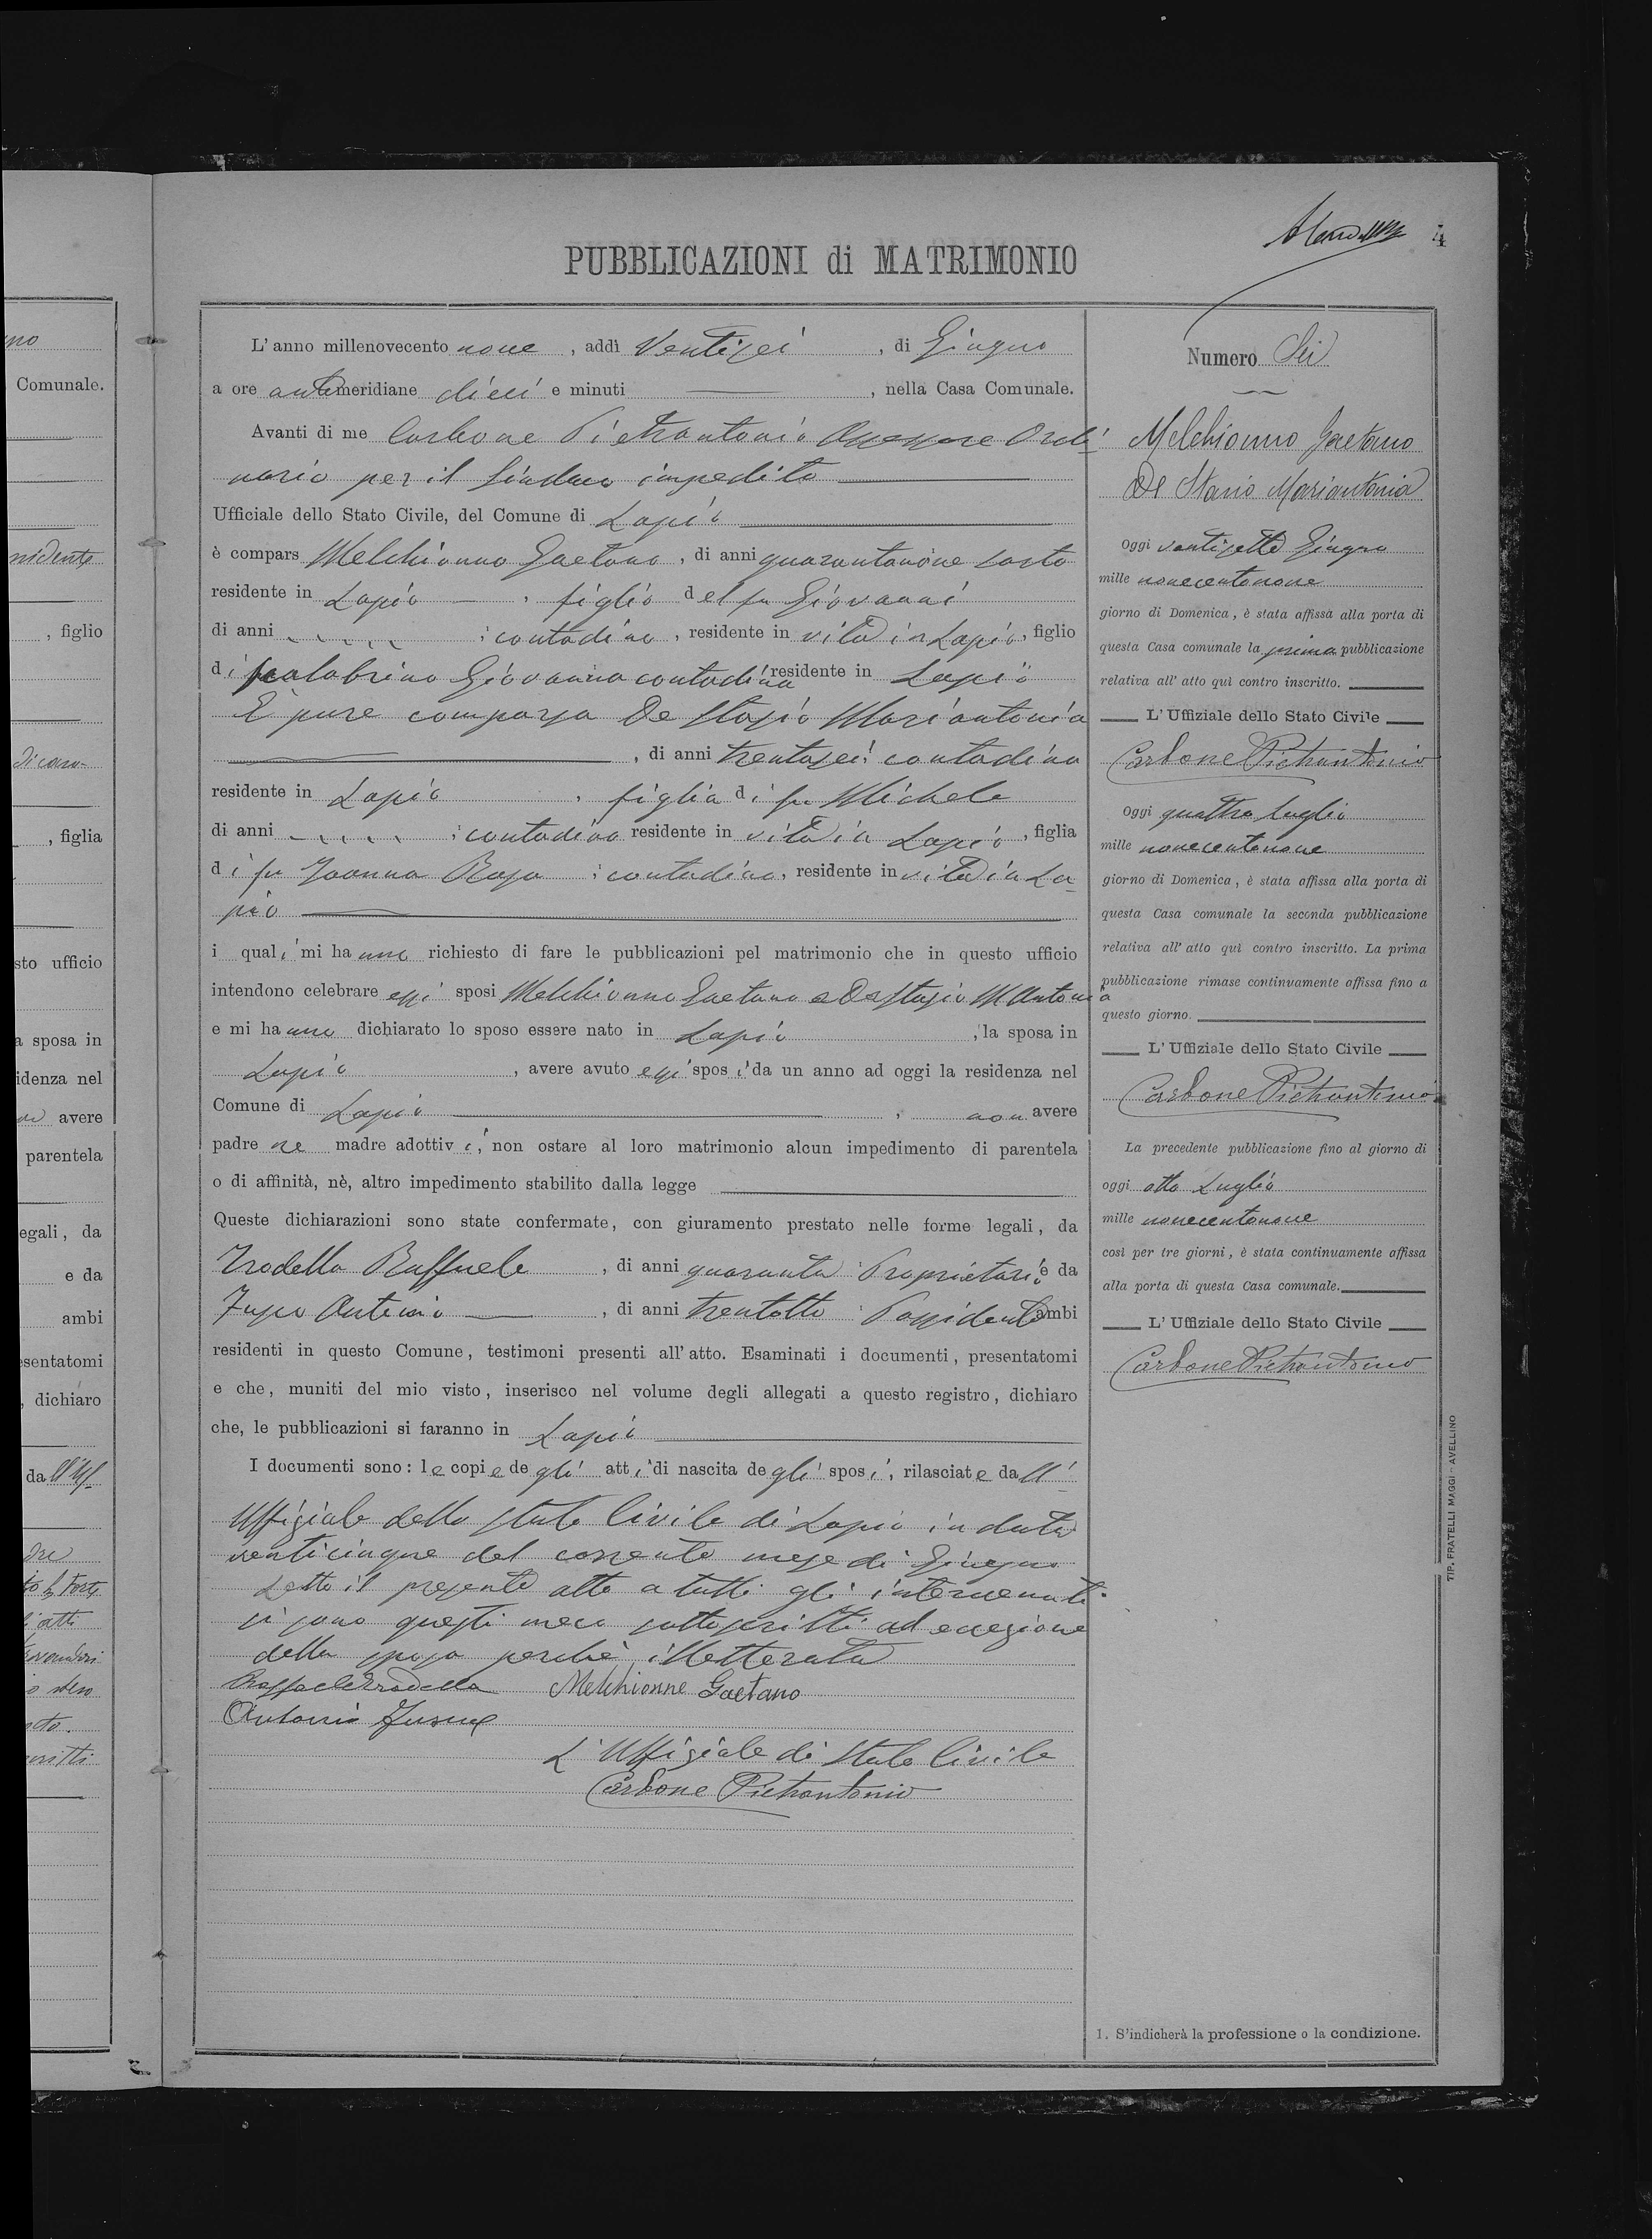 4
PUBBLICAZIONI di MATRIMONIO
L'anno millenovecento nove, addì Ventisei, di Giugno
a ore antimeridiane dieci e minuti ——, nella Casa Comunale.
Avanti di me Carbone Pietrantonio Assessore Ordi-
nario per il Sindaco impedito
Ufficiale dello Stato Civile, del Comune di Lapio
è compars Melchionno Gaetano, di anni quarantanove sarto
residente in Lapio, figlio del fu Giovanni
di anni : contadino, residente in vita in Lapio, figlio
di Scalabrino Giovanna contadina residente in Lapio
È pure comparsa De Stasio Mariantonia
, di anni trentasei contadina
residente in Lapio, figlia di fu Michele
di anni : contadino residente in vita in Lapio, figlia
di fu Joanna Rosa : contadina, residente in vita in La-
pio
i quali mi hanno richiesto di fare le pubblicazioni pel matrimonio che in questo ufficio
intendono celebrare essi sposi Melchionno Gaetano e De Stasio M Antonia
e mi hanno dichiarato lo sposo essere nato in Lapio, la sposa in
Lapio, avere avuto essi sposi da un anno ad oggi la residenza nel
Comune di Lapio, non avere
padre ne madre adottivi, non ostare al loro matrimonio alcun impedimento di parentela
o di affinità, nè, altro impedimento stabilito dalla legge
Queste dichiarazioni sono state confermate, con giuramento prestato nelle forme legali, da
Trodella Raffaele, di anni quaranta : Proprietario e da
Antonio, di anni trentotto : Possidente ambi
residenti in questo Comune, testimoni presenti all'atto. Esaminati i documenti, presentatomi
e che, muniti del mio visto, inserisco nel volume degli allegati a questo registro, dichiaro
che, le pubblicazioni si faranno in Lapio
I documenti sono: le copie degli atti di nascita degli sposi, rilasciate dall'
Uffiziale dello Stato Civile di Lapio in data
venticinque del corrente mese di Giugno
Letto il presente atto a tutti gli intervenuti
si sono questi meco sottoscritti ad eccezione
della sposa perchè illetterata
Raffaele Trodella Melchionne Gaetano
Antonio
L'Uffiziale di Stato Civile
Carbone Pietrantonio
Numero Sei
Melchionno Gaetano
De Stasio Mariantonia
Oggi ventisette Giugno
mille novecentonove
giorno di Domenica, è stata affissa alla porta di
questa Casa comunale la prima pubblicazione
relativa all'atto quì contro inscritto.
L'Uffiziale dello Stato Civile
Carbone Pietrantonio
Oggi quattro luglio
mille novecentonove
giorno di Domenica, è stata affissa alla porta di
questa Casa comunale la seconda pubblicazione
relativa all'atto quì contro inscritto. La prima
pubblicazione rimase continuamente affissa fino a
questo giorno.
L'Uffiziale dello Stato Civile
Carbone Pietrantonio
La precedente pubblicazione fino al giorno di
oggi otto Luglio
mille novecentonove
così per tre giorni, è stata continuamente affissa
alla porta di questa Casa comunale.
L'Uffiziale dello Stato Civile
Carbone Pietrantonio
1. S'indicherà la professione o la condizione.
TIP. FRATELLI MAGGI - AVELLINO
Comunale.
, figlio
, figlia
sto ufficio
a sposa in
idenza nel
avere
parentela
egali, da
e da
ambi
esentatomi
, dichiaro
da